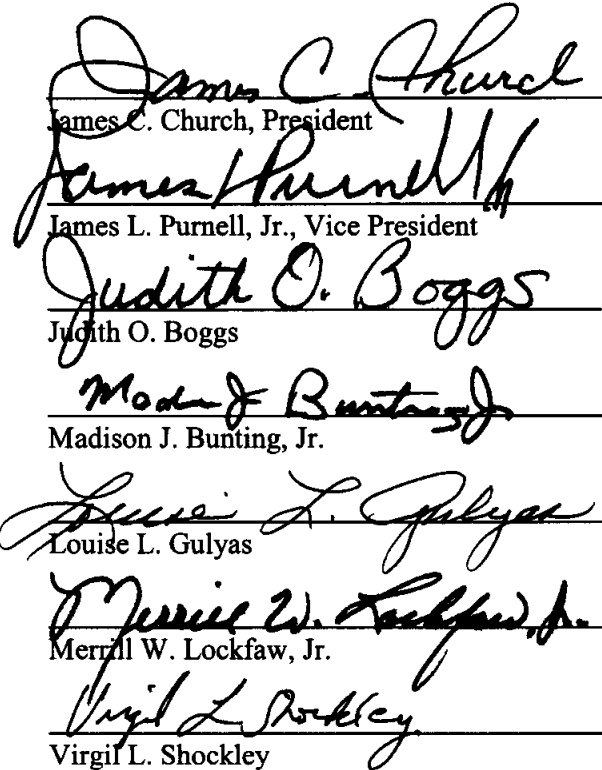 James C. Church
James C. Church, President
James L Purnell Jr
James L. Purnell, Jr., Vice President
Judith O. Boggs
Judith O. Boggs
Madison J Bunting Jr
Madison J. Bunting, Jr.
Louise L. Gulyas
Louise L. Gulyas
Merrill W. Lockfaw, Jr.
Merrill W. Lockfaw, Jr.
Virgil L. Shockley
Virgil L. Shockley